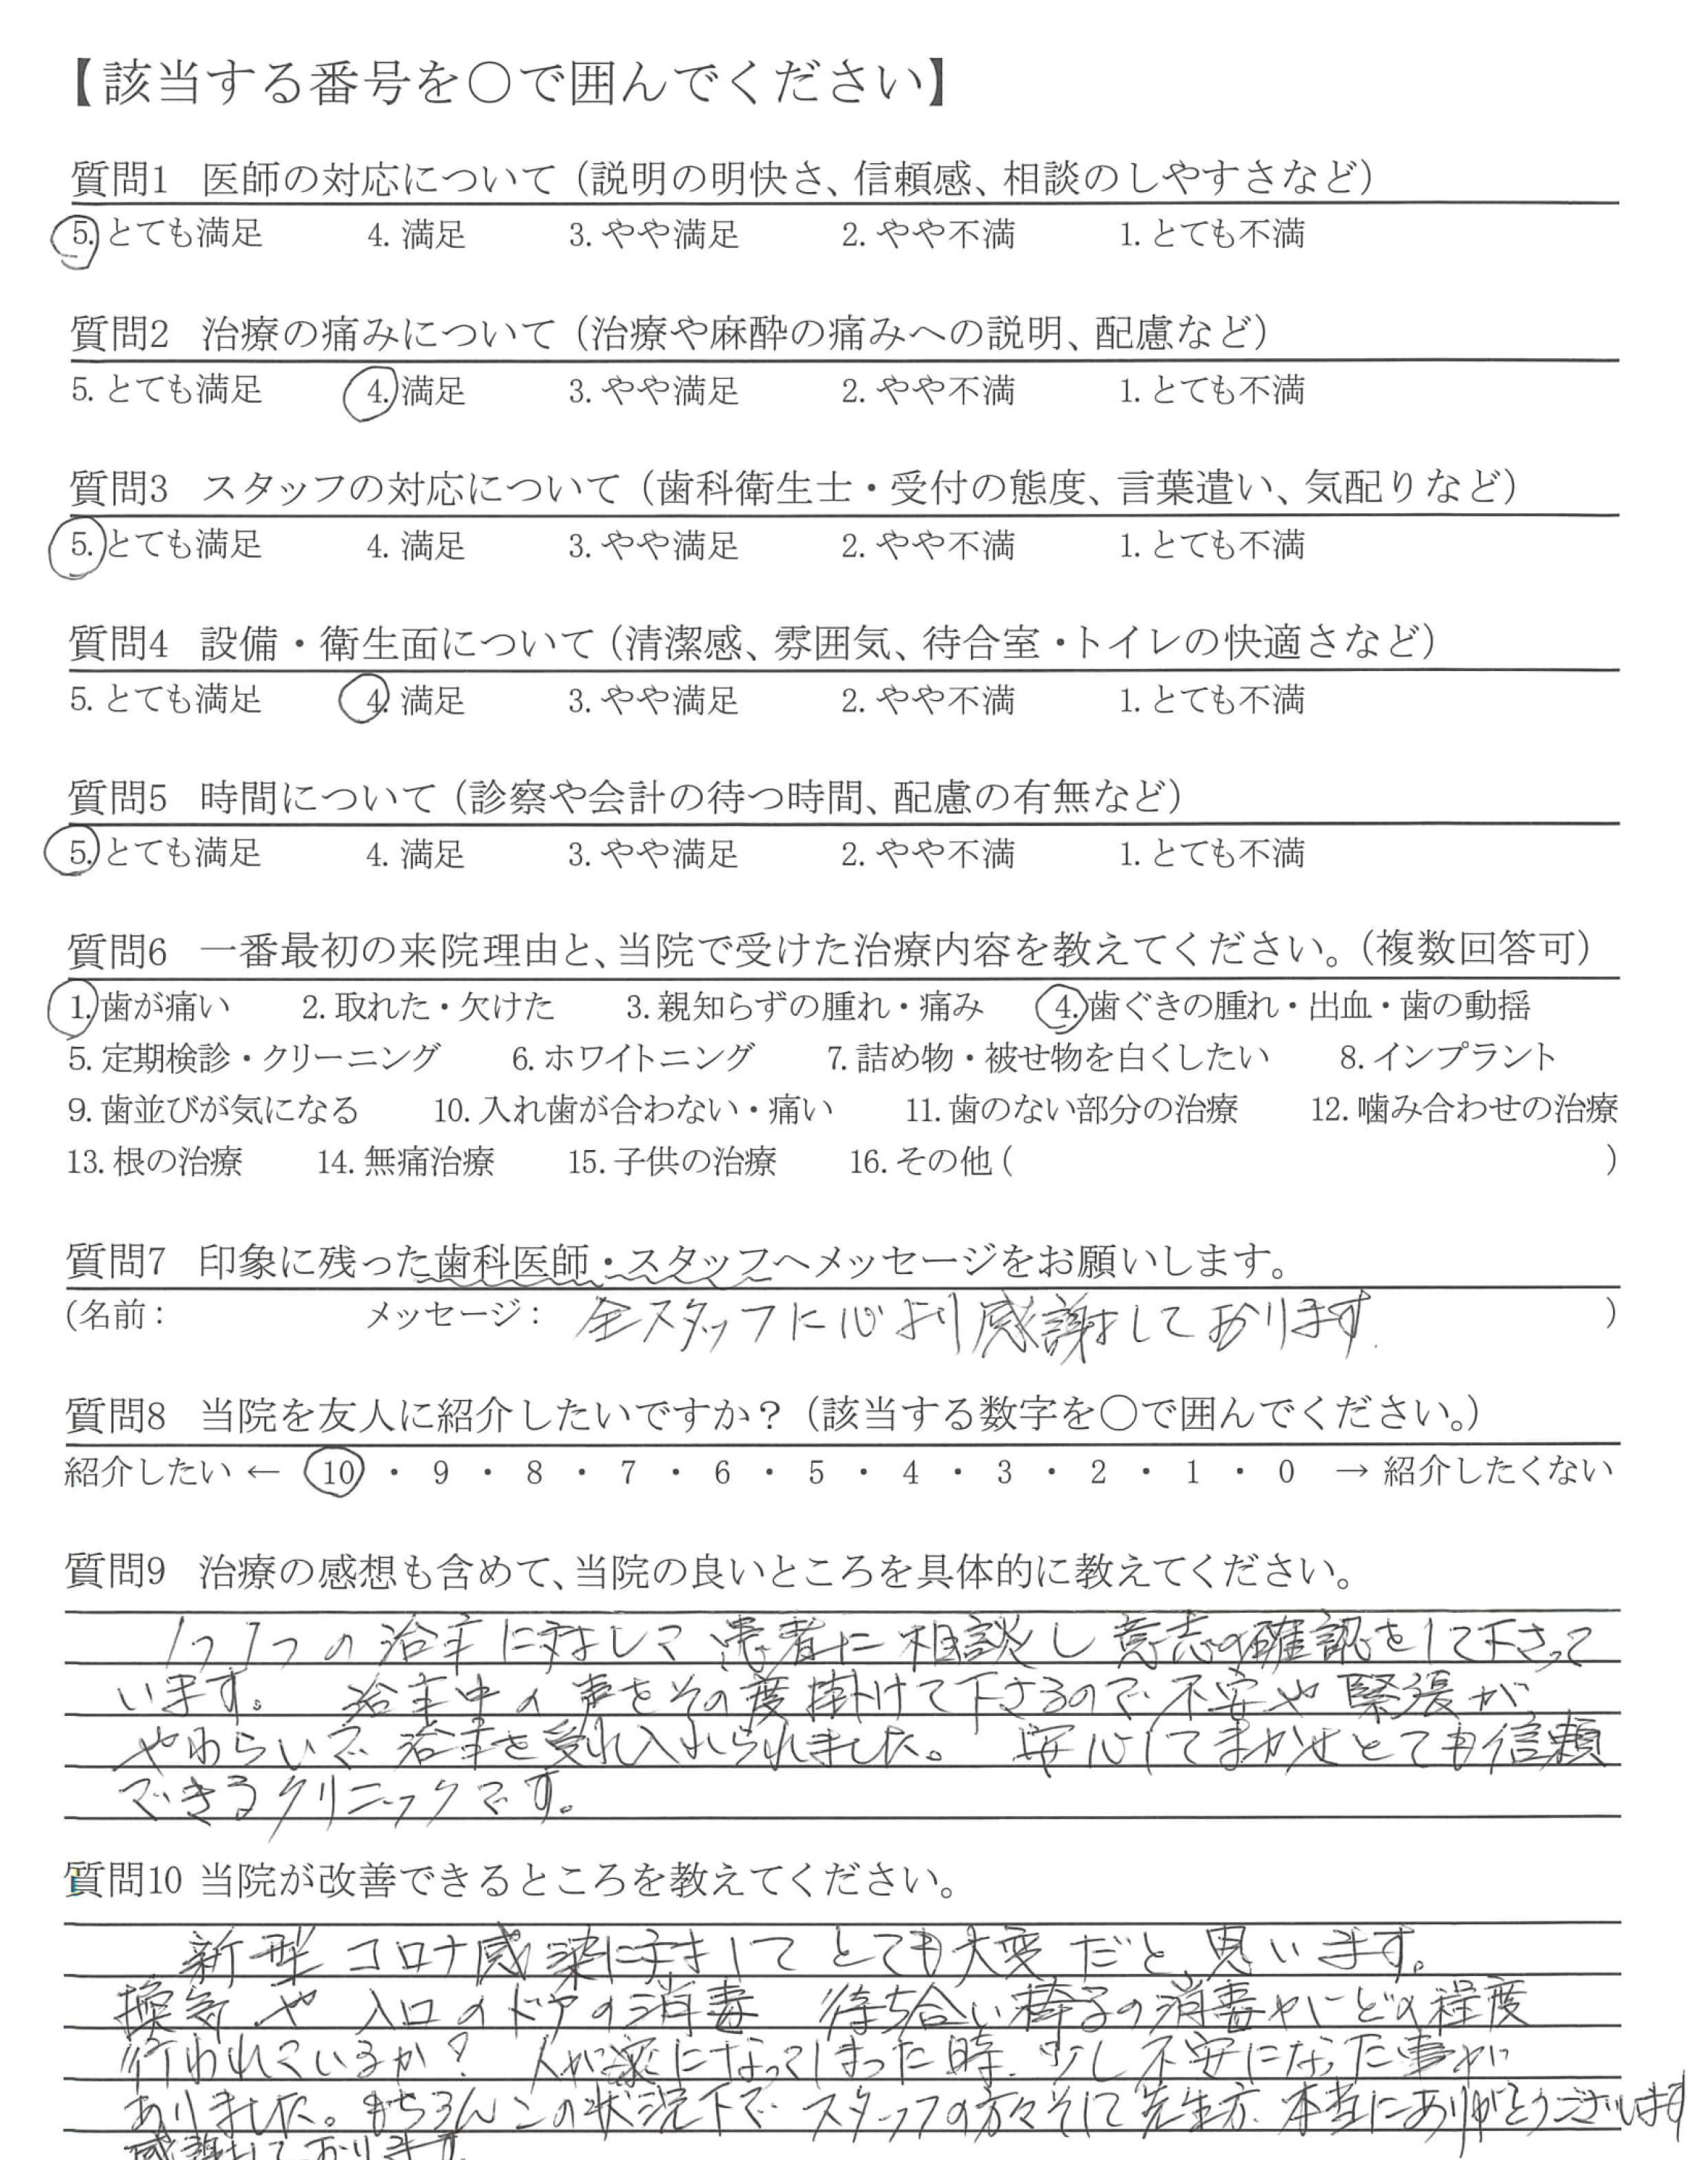 【該当する番号を〇で囲んでください】
質問1 医師の対応について（説明の明快さ、信頼感、相談のしやすさなど）
5. とても満足 4. 満足 3. やや満足 2. やや不満 1. とても不満
質問2 治療の痛みについて（治療や麻酔の痛みへの説明、配慮など）
5. とても満足 4. 満足 3. やや満足 2. やや不満 1. とても不満
質問3 スタッフの対応について（歯科衛生士・受付の態度、言葉遣い、気配りなど）
5. とても満足 4. 満足 3. やや満足 2. やや不満 1. とても不満
質問4 設備・衛生面について（清潔感、雰囲気、待合室・トイレの快適さなど）
5. とても満足 4. 満足 3. やや満足 2. やや不満 1. とても不満
質問5 時間について（診察や会計の待つ時間、配慮の有無など）
5. とても満足 4. 満足 3. やや満足 2. やや不満 1. とても不満
質問6 一番最初の来院理由と、当院で受けた治療内容を教えてください。（複数回答可）
1. 歯が痛い 2. 取れた・欠けた 3. 親知らずの腫れ・痛み 4. 歯ぐきの腫れ・出血・歯の動揺
5. 定期検診・クリーニング 6. ホワイトニング 7. 詰め物・被せ物を白くしたい 8. インプラント
9. 歯並びが気になる 10. 入れ歯が合わない・痛い 11. 歯のない部分の治療 12. 噛み合わせの治療
13. 根の治療 14. 無痛治療 15. 子供の治療 16. その他（ ）
質問7 印象に残った歯科医師・スタッフへメッセージをお願いします。
（名前： メッセージ： 全スタッフに心より感謝しております. ）
質問8 当院を友人に紹介したいですか？（該当する数字を〇で囲んでください。）
紹介したい ← 10 ・ 9 ・ 8 ・ 7 ・ 6 ・ 5 ・ 4 ・ 3 ・ 2 ・ 1 ・ 0 → 紹介したくない
質問9 治療の感想も含めて、当院の良いところを具体的に教えてください。
1つ1つの治療に対して患者に相談し意志の確認をして下さって
います。 治療中の声をその度掛けて下さるので不安や緊張が
やわらいで治療を受け入れられました。 安心してまかせとても信頼
できるクリニックです。
質問10 当院が改善できるところを教えてください。
新型コロナ感染に対してとても大変だと思います。
換気や入口のドアの消毒 待ち合い椅子の消毒やにどの程度
行われているか？ 人が密になってしまった時、少し不安になった事が
ありました。もちろんこの状況下でスタッフの方々そして先生方、本当にありがとうございます
感謝しております